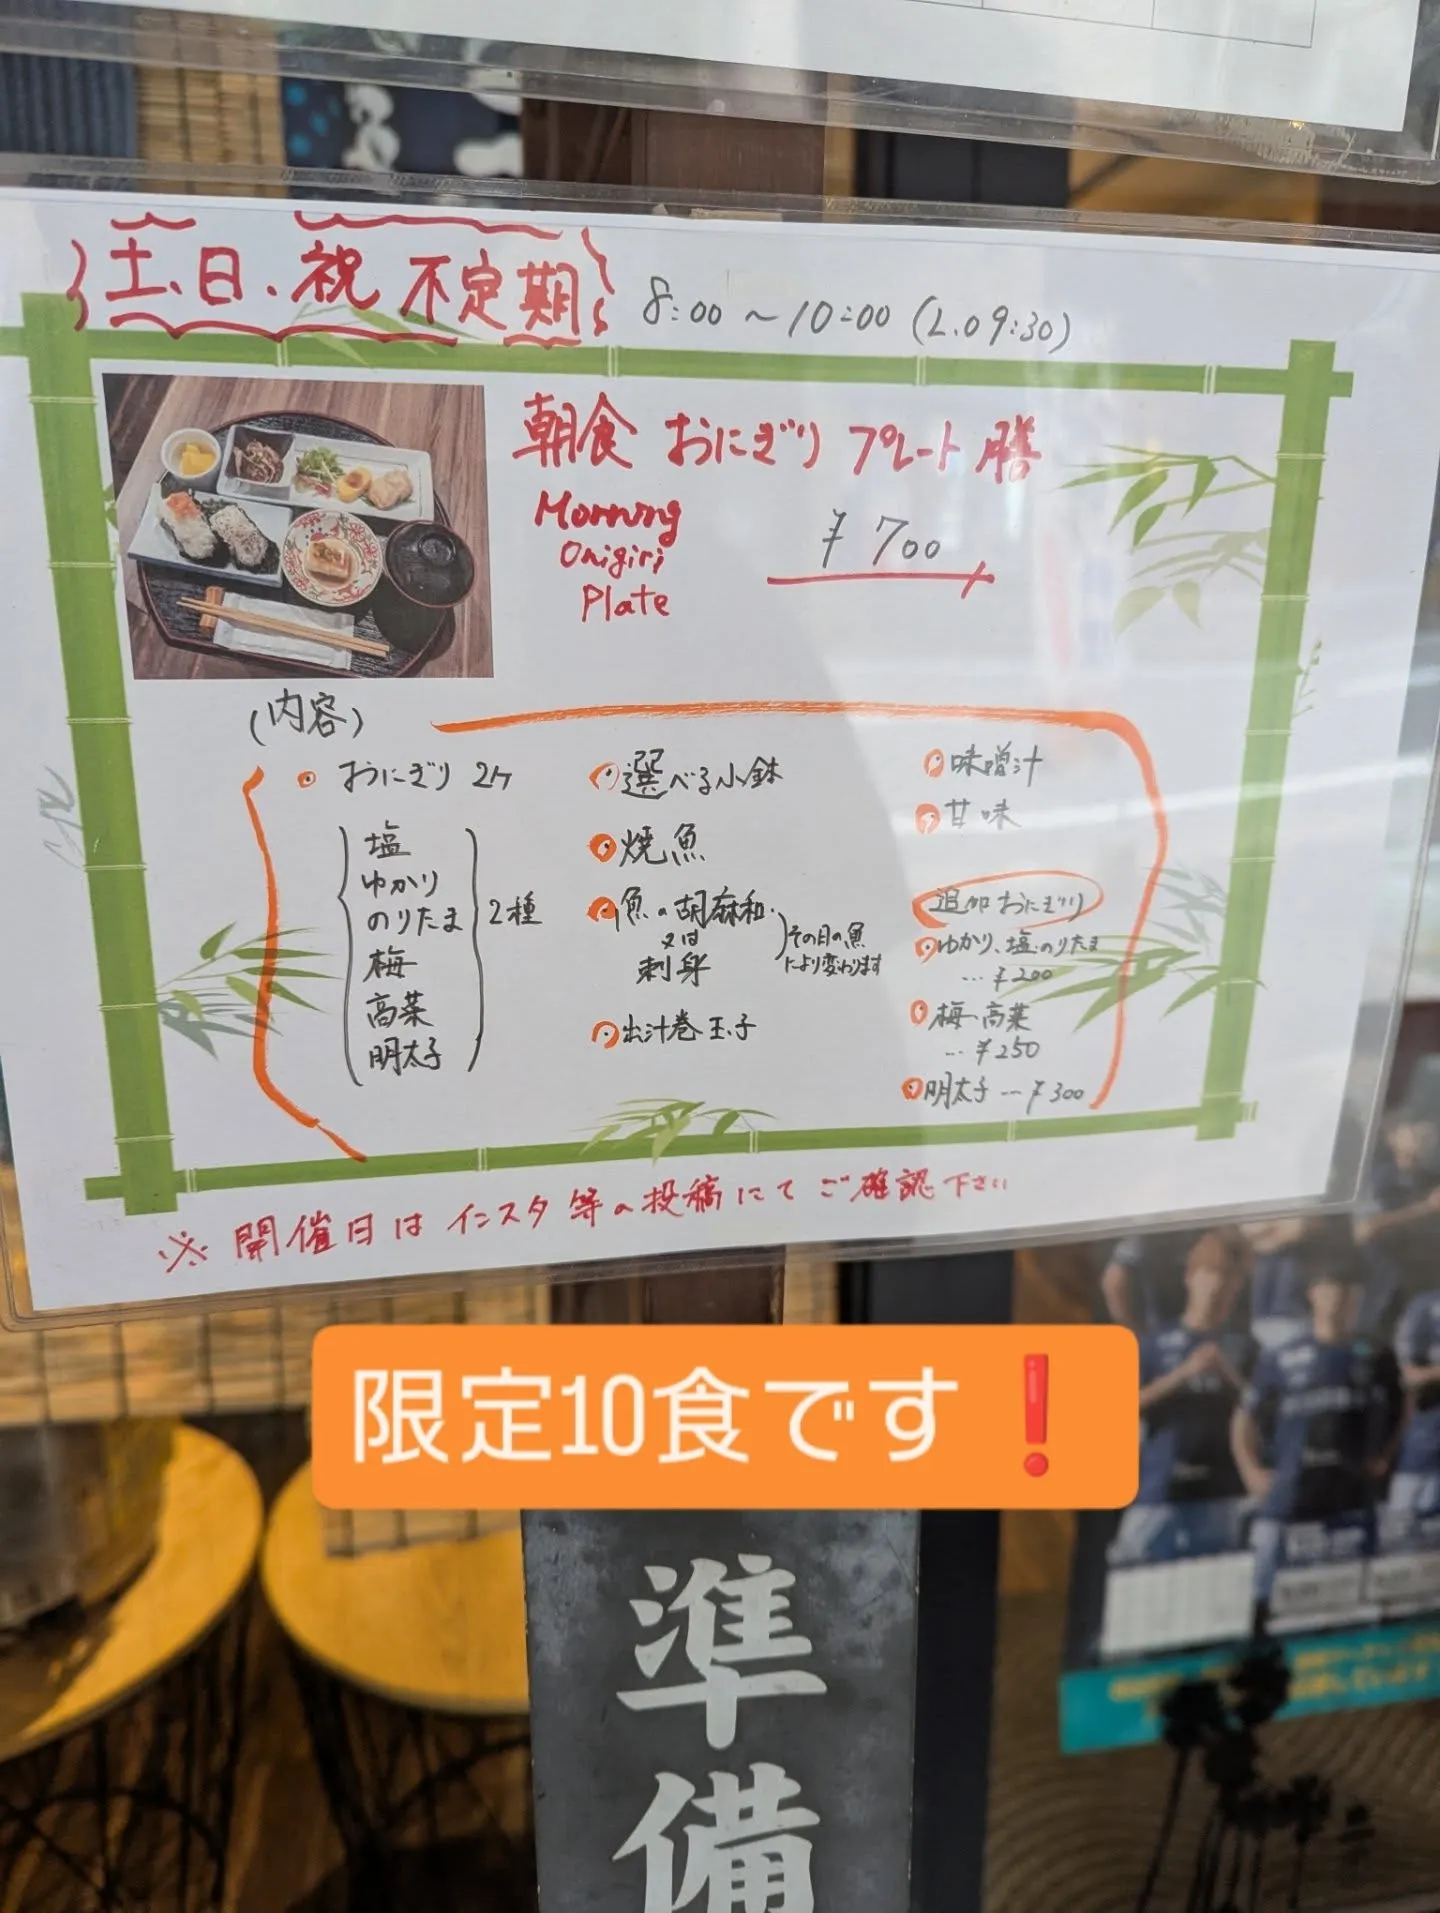 土、日、祝 不定期
8:00〜10:00 (L.O 9:30)
朝食 おにぎり プレート膳
Morning
Onigiri
Plate
¥700
(内容)
おにぎり 2ケ
塩
ゆかり
のりたま
梅
高菜
明太子
2種
選べる小鉢
焼魚
魚の胡麻和
又は
刺身
その日の魚
により変わります
出汁巻玉子
味噌汁
甘味
追加おにぎり
ゆかり、塩、のりたま
…¥200
梅・高菜
…¥250
明太子…¥300
※開催日はインスタ等の投稿にてご確認下さい
限定10食です❗
準備